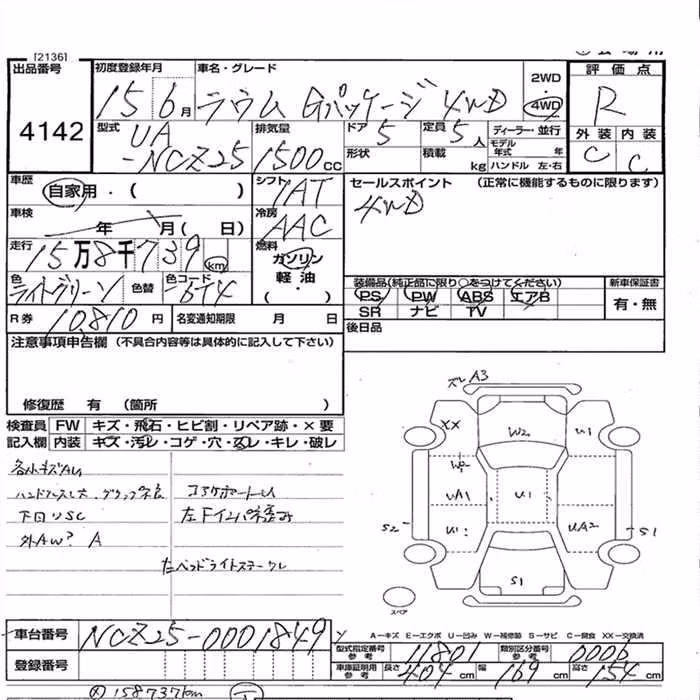 [2136]
出品番号
4142
初度登録年月
15 6月
車名・グレード
ラウム Gパッケージ 4WD
2WD
4WD
評価点
R
外装 内装
C C
型式
UA
-NCZ25
排気量
1500CC
ドア 5
定員 5人
形状
積載 kg
ディーラー・並行
モデル年式 年
ハンドル 左・右
車歴
自家用・( )
シフト
IAT
セールスポイント (正常に機能するものに限ります)
4WD
車検
年 月( 日)
冷房
AAC
走行
15万8千739km
燃料
ガソリン
軽油
( ・ )
色
ライトグリーン
色替
色コード
6T4
装備品(純正品に限り○をつけてください)
PS PW ABS エアB
SR ナビ TV
新車保証書
有・無
R券 10,810円
名変通知期限 月 日
後日品
注意事項申告欄 (不具合内容等は具体的に記入して下さい)
修復歴 有 (箇所 )
検査員 FW キズ・飛石・ヒビ割・リペア跡・×要
記入欄 内装 キズ・汚レ・コゲ・穴・スレ・キレ・破レ
各小キズAU
下回りSC
外AW? A
コアサポートU
左ヘッドライトステーズレ
ズレ A3
XX
W2
U1
W2
UA1
U1
U1
UA2
S2
S1
S1
スペア
A-キズ E-エクボ U-凹み W-補修跡 S-サビ C-腐食 XX-交換済
車台番号 NCZ25-0001849
登録番号
型式指定番号 参考 11801
類別区分番号 参考 0006
車庫証明用 参考 長さ 404cm 幅 169cm 高さ 154cm
158737km